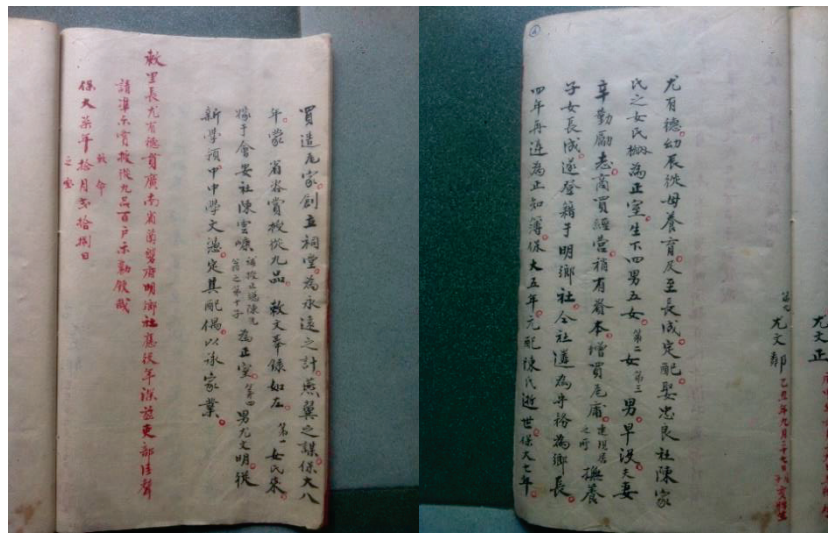 尤文正
尤文郁
尤有德幼辰從母養育及至長成定配娶忠良社陳家
氏之女氏 為正室生下四男五女第二女第三男早沒夫妻
辛勤勵志商買經營稍有眷本增買瓦庯連現居之所撫養
子女長成遂登籍于明鄉社仝社遞為守枌為鄉長
四年再進為正知簿保大五年元配陳氏逝世保大七年
買造瓦家創立祠堂為永遠之計燕翼之謀保大八
年蒙 省咨賞授從九品 敕文奉錄如左 第一女氏來
嫁于會安社陳雲嶸補授正總陳元蔣之第十子為正室第四男尤文明從
新學預中中學文憑定其配偶以承家業
敕里長尤有德貫廣南省奠磐府明鄉社應役年深茲吏部 聲
請準尔賞授從九品百戶示勸欽哉
敕命
之寶
保大柒年拾月貳拾捌日